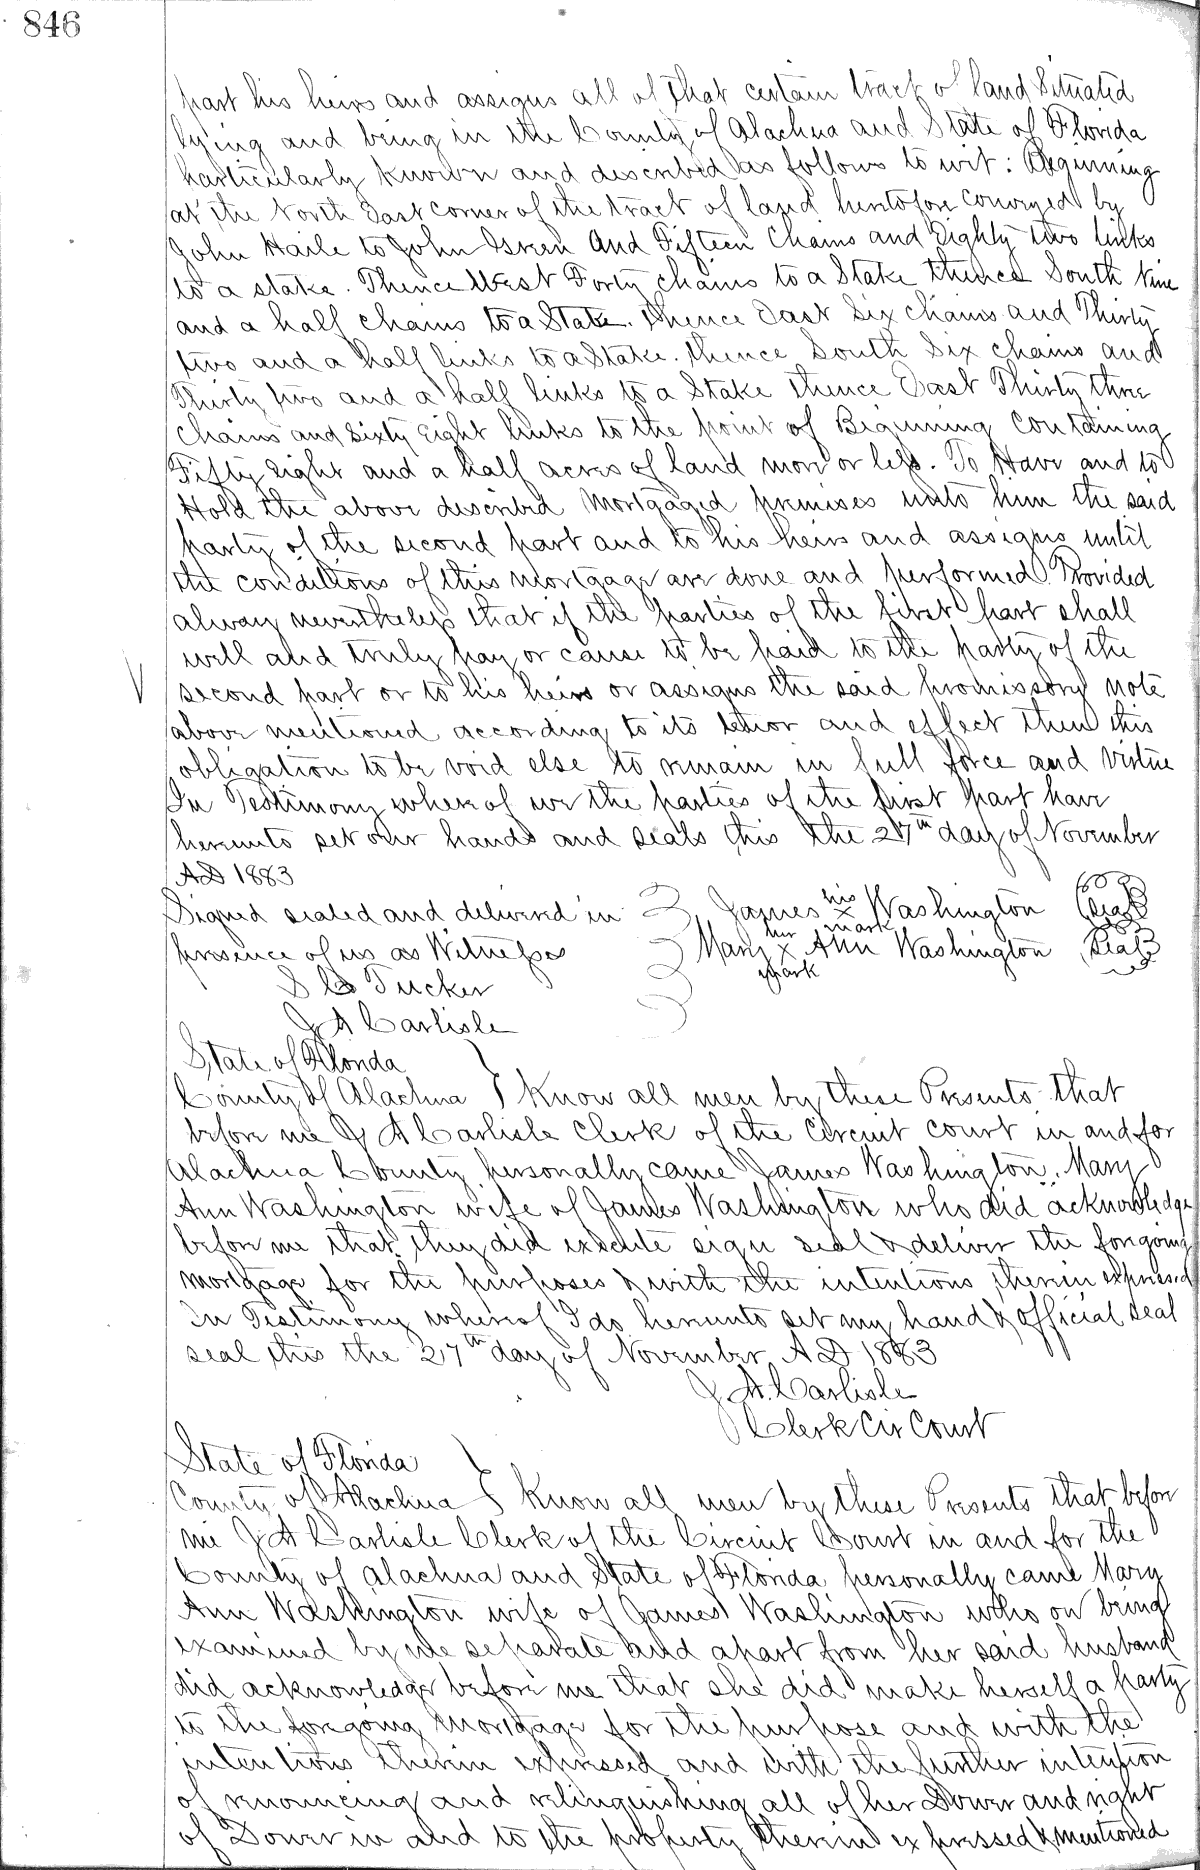 846
part his heirs and assigns all of that certain tract of land Situated
lying and being in the County of Alachua and State of Florida
particularly known and described as follows to wit: Beginning
at the North East corner of the tract of land heretofore conveyed by
John Haile to John Green And Fifteen Chains and Eighty two links
to a stake. Thence West Forty chains to a Stake thence South Nine
and a half chains to a Stake. thence East Six chains and Thirty
two and a half links to a Stake. thence South Six chains and
Thirty two and a half links to a Stake thence East Thirty three
Chains and Sixty Eight links to the point of Beginning Containing
Fifty Eight and a half acres of land more or less. To Have and to
Hold the above described Mortgaged premises unto him the said
party of the second part and to his heirs and assigns until
the conditions of this mortgage are done and performed. Provided
alway nevertheless that if the parties of the first part shall
well and truly pay or cause to be paid to the party of the
second part or to his heirs or assigns the said promissory note
above mentioned according to its tenor and effect then this
obligation to be void else to remain in full force and virtue
In Testimony whereof we the parties of the first part have
hereunto set our hands and seals this the 27th day of November
AD 1883
Signed sealed and delivered in James his x mark Washington (Seal)
presence of us as Witnesses Mary her x mark Ann Washington (Seal)
S C Tucker
J A Carlisle
State of Florida
County of Alachua } Know all men by these Presents that
before me J A Carlisle Clerk of the Circuit court in and for
Alachua County personally came James Washington, Mary
Ann Washington wife of James Washington who did acknowledge
before me that they did execute sign seal & deliver the foregoing
mortgage for the purposes & with the intentions therein expressed
In Testimony whereof I do hereunto set my hand & official seal
seal this the 27th day of November AD 1883
J A. Carlisle
Clerk Cir Court
State of Florida
County of Alachua } Know all men by these Presents that before
me J A Carlisle Clerk of the Circuit Court in and for the
County of Alachua and State of Florida personally came Mary
Ann Washington wife of James Washington who on being
examined by me separate and apart from her said husband
did acknowledge before me that she did make herself a party
to the foregoing Mortgage for the purpose and with the
intentions therein expressed and with the further intention
of renouncing and relinquishing all of her Dower and right
of Dower in and to the property therein expressed & mentioned